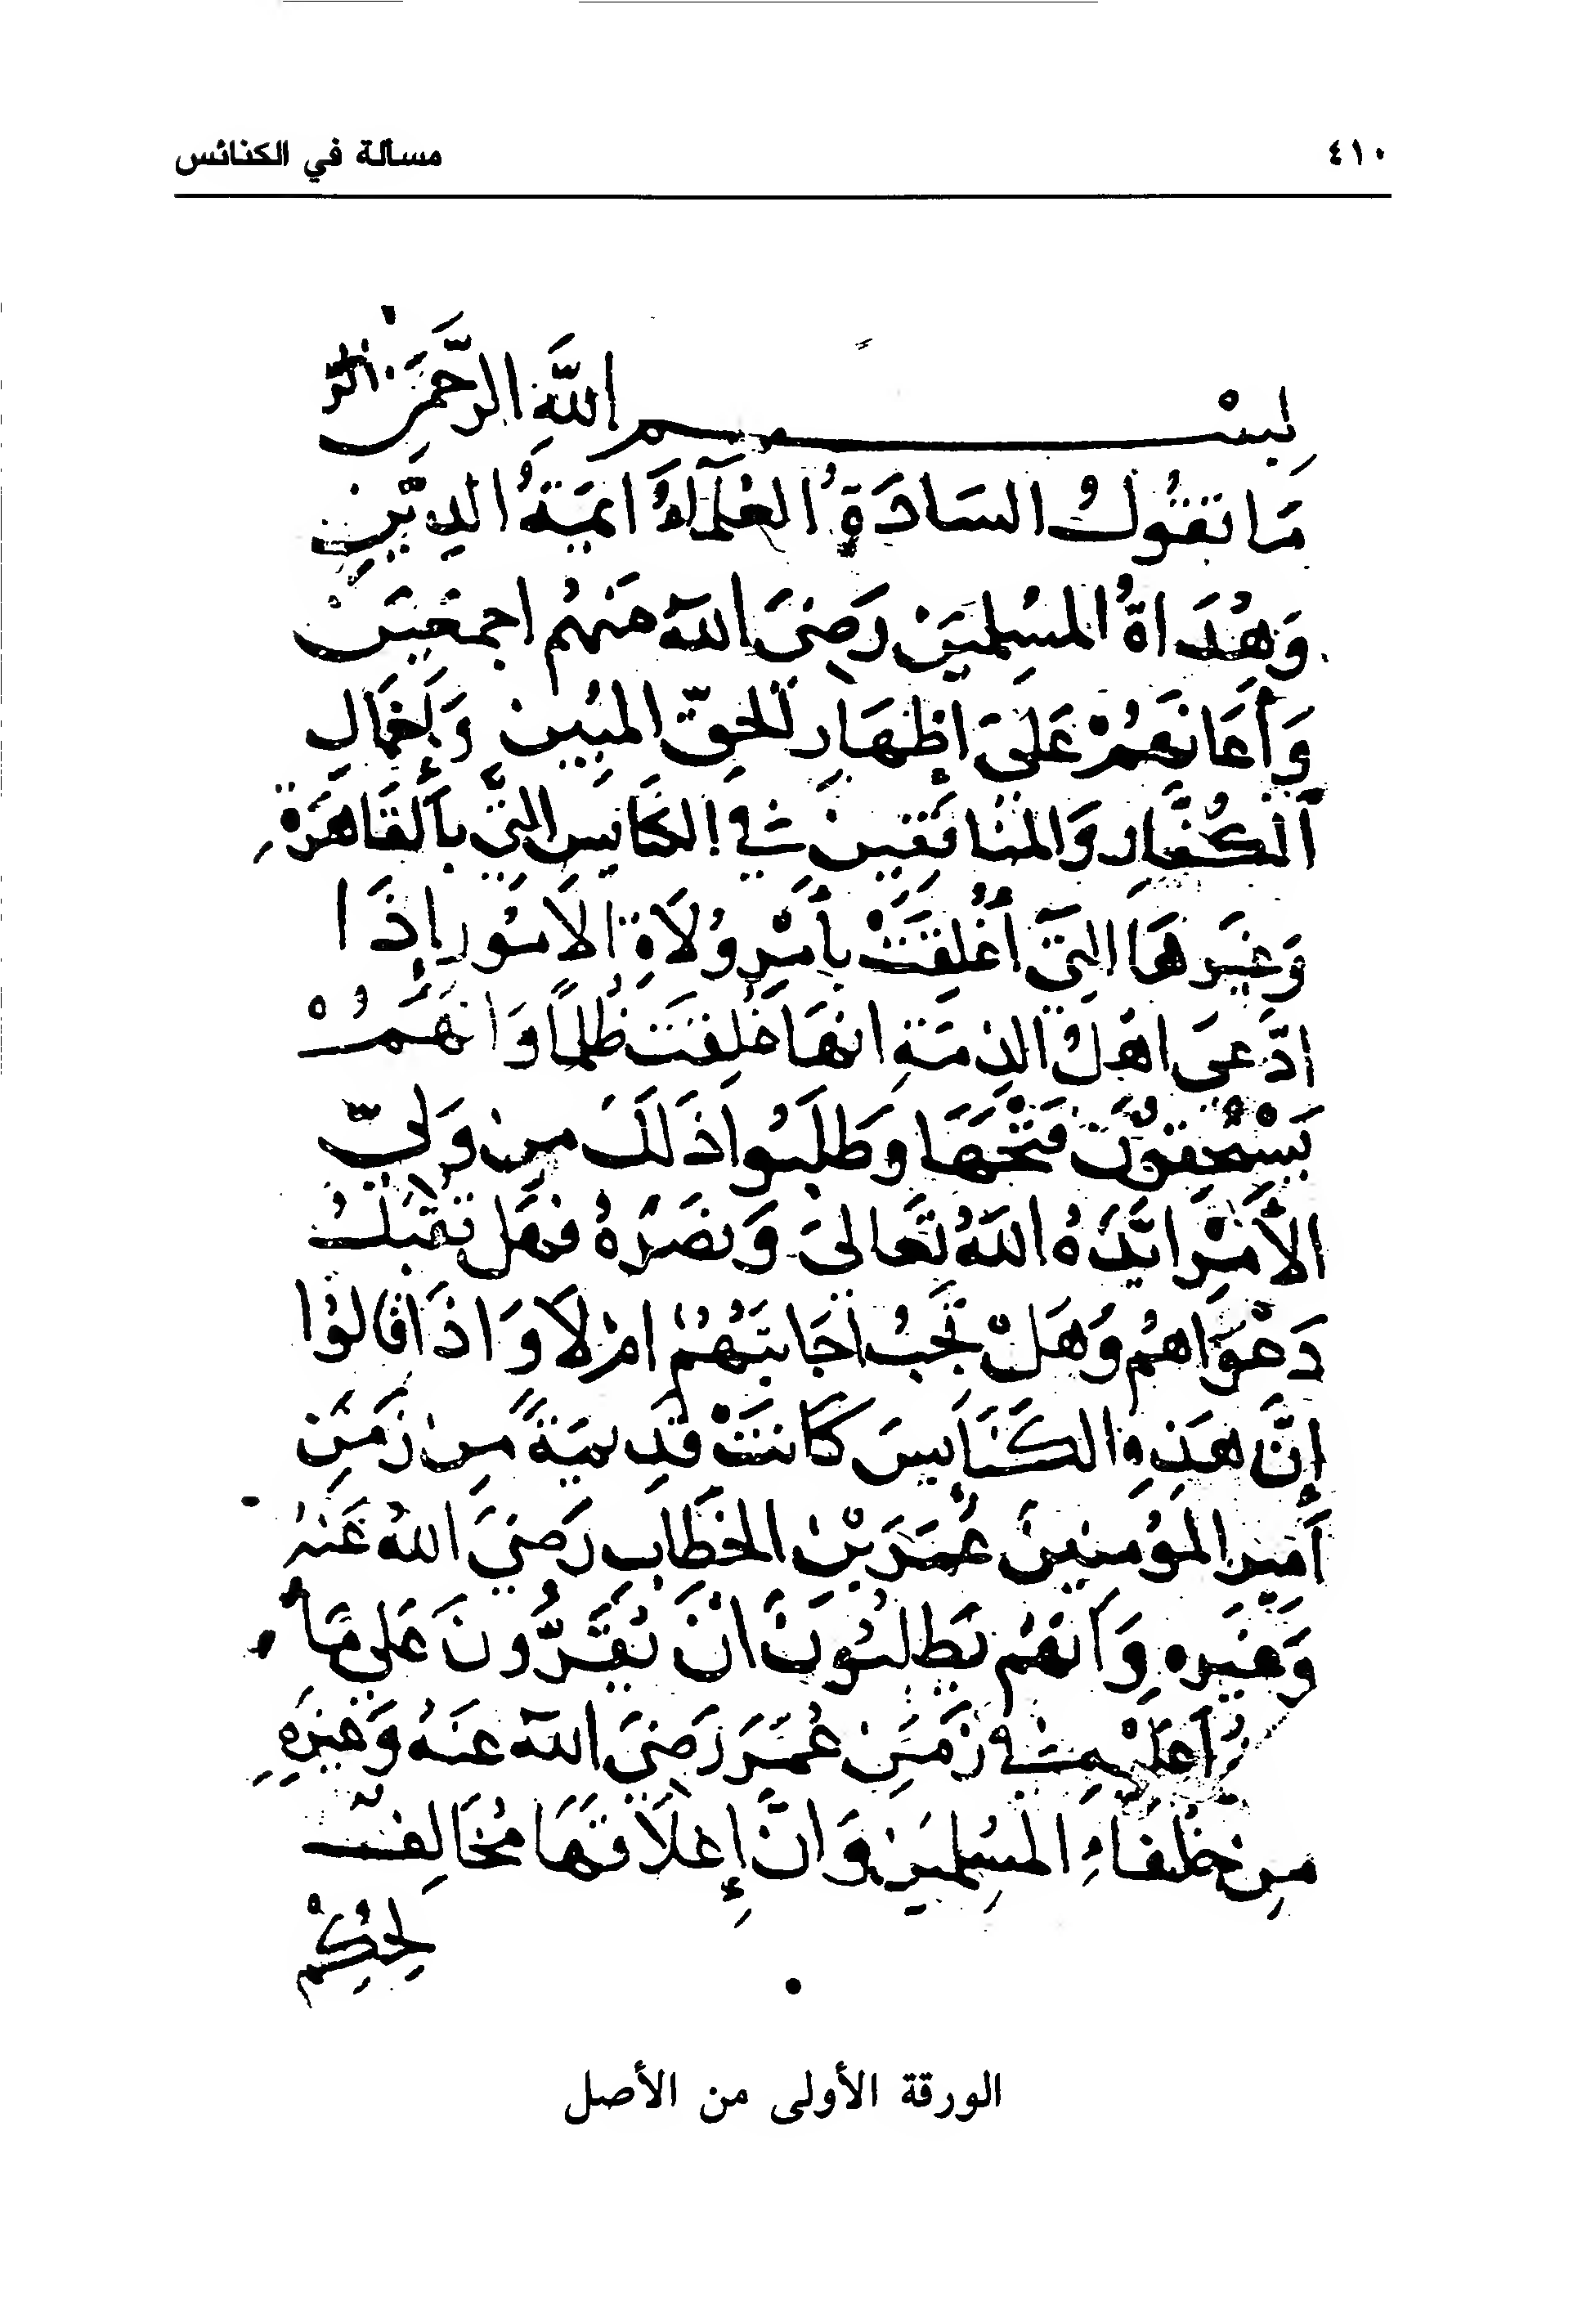 ٤١٠ مسألة في الكنائس
بِسْم اللَّهِ الرَّحْمَنِ
مَا تقُولُ السَادَةُ العُلَمَآءُ ايمَةُ الدِيْنِ
وَهُدَاةُ المُسِلِميَن رَضِيَ اللهُ عَنهُم اجمعَيَن
وَأَعَانَهُمْ عَلىَ اظِهَارِ الحقِّ المبُينِ وَإخمَالِ
الكُفَّارِ وَالمنَافقِينَ في الكَنايسِ التِّي بالقَاهَرَةِ
وَغيَرهَا التِيَ أُغْلِقَتْ بأَمْرِ وُلَاةِ الاَمُور إِذَا
ادَّعىَ اهَلُ الذِمَةِ انهَا غُلِقَت ظُلماً وَانهَمُْ
يَسْتحَقِوُّنَ فَتْحَهَا وطَلَبُوا ذَلكَ مِن وَلىِّ
الأَمْرِ ايَّدَهُ اللهُ تعَالىَ وَنصَرَهُ فهَل تقُبَلُ
دَعْوَاهُم وَهَلْ تَجَبُ اجَابتَهُمُ امْ لاَ وَاذَا قالوُا
إِنَّ هَذِهِ الكَنَايسَ كَانَتْ قَدِيميَةً مِن زَمَنِ
أَميِر المؤُمنيِنَ عُمَرَ بْن الخطَابِ رَضيَ اللهُ عَنهُ
وَغيَرِه وَأنهَمُ يَطلبُوُنَ انْ يُقَرُّونَ عَلي مَا
علَيْهِ في زَمَنِ عُمَرَ رَضيَ اللهُ عنَهُ وَغيَرِهِ
مِن خُلفَاءِ المسُلِميَن وَانَّ إِغلاَقهَا مُخَالِفٌ
لحِكُمِ
الورقة الأولى من الأصل